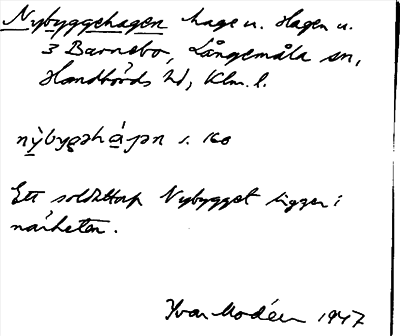 Nybyggehagen hage u. Hagen u.
3 Barnebo, Långemåla sn,
Handbörds hd, Klm. l.
nỳbygəhápən s. 160
Ett soldattorp Nybygget ligger i
närheten.
Ivar Modéer 1947